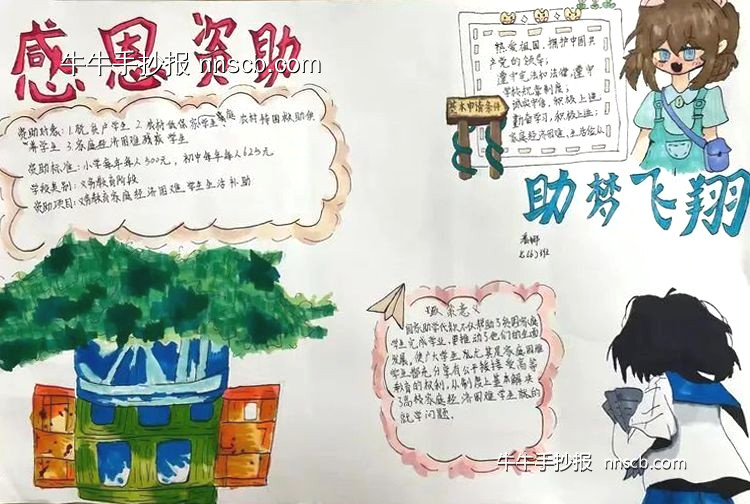 感恩资助
牛牛手抄报 nnscb.com
资助对象:1.脱贫户学生 2.农村低保家庭学生 农村特困救助供
养学生 3.家庭经济困难残疾学生
资助标准:小学每年每人500元,初中每年每人625元
学校类别:义务教育阶段
资助项目:义务教育家庭经济困难学生生活补助
基本申请条件
热爱祖国,拥护中国共
产党的领导;
遵守宪法和法律,遵守
学校规章制度;
诚实守信,积极上进
勤奋学习,积极上进;
家庭经济困难,生活俭朴
助梦飞翔
政策意义
国家助学贷款不仅帮助了贫困家庭
学生完成学业,更推动了他们的全面
发展,使广大学生尤其是家庭困难
学生都充分享有公平接受高等
教育的权利,从制度上基本解决
了高校家庭经济困难学生的
就学问题.
牛牛手抄报 nnscb.com